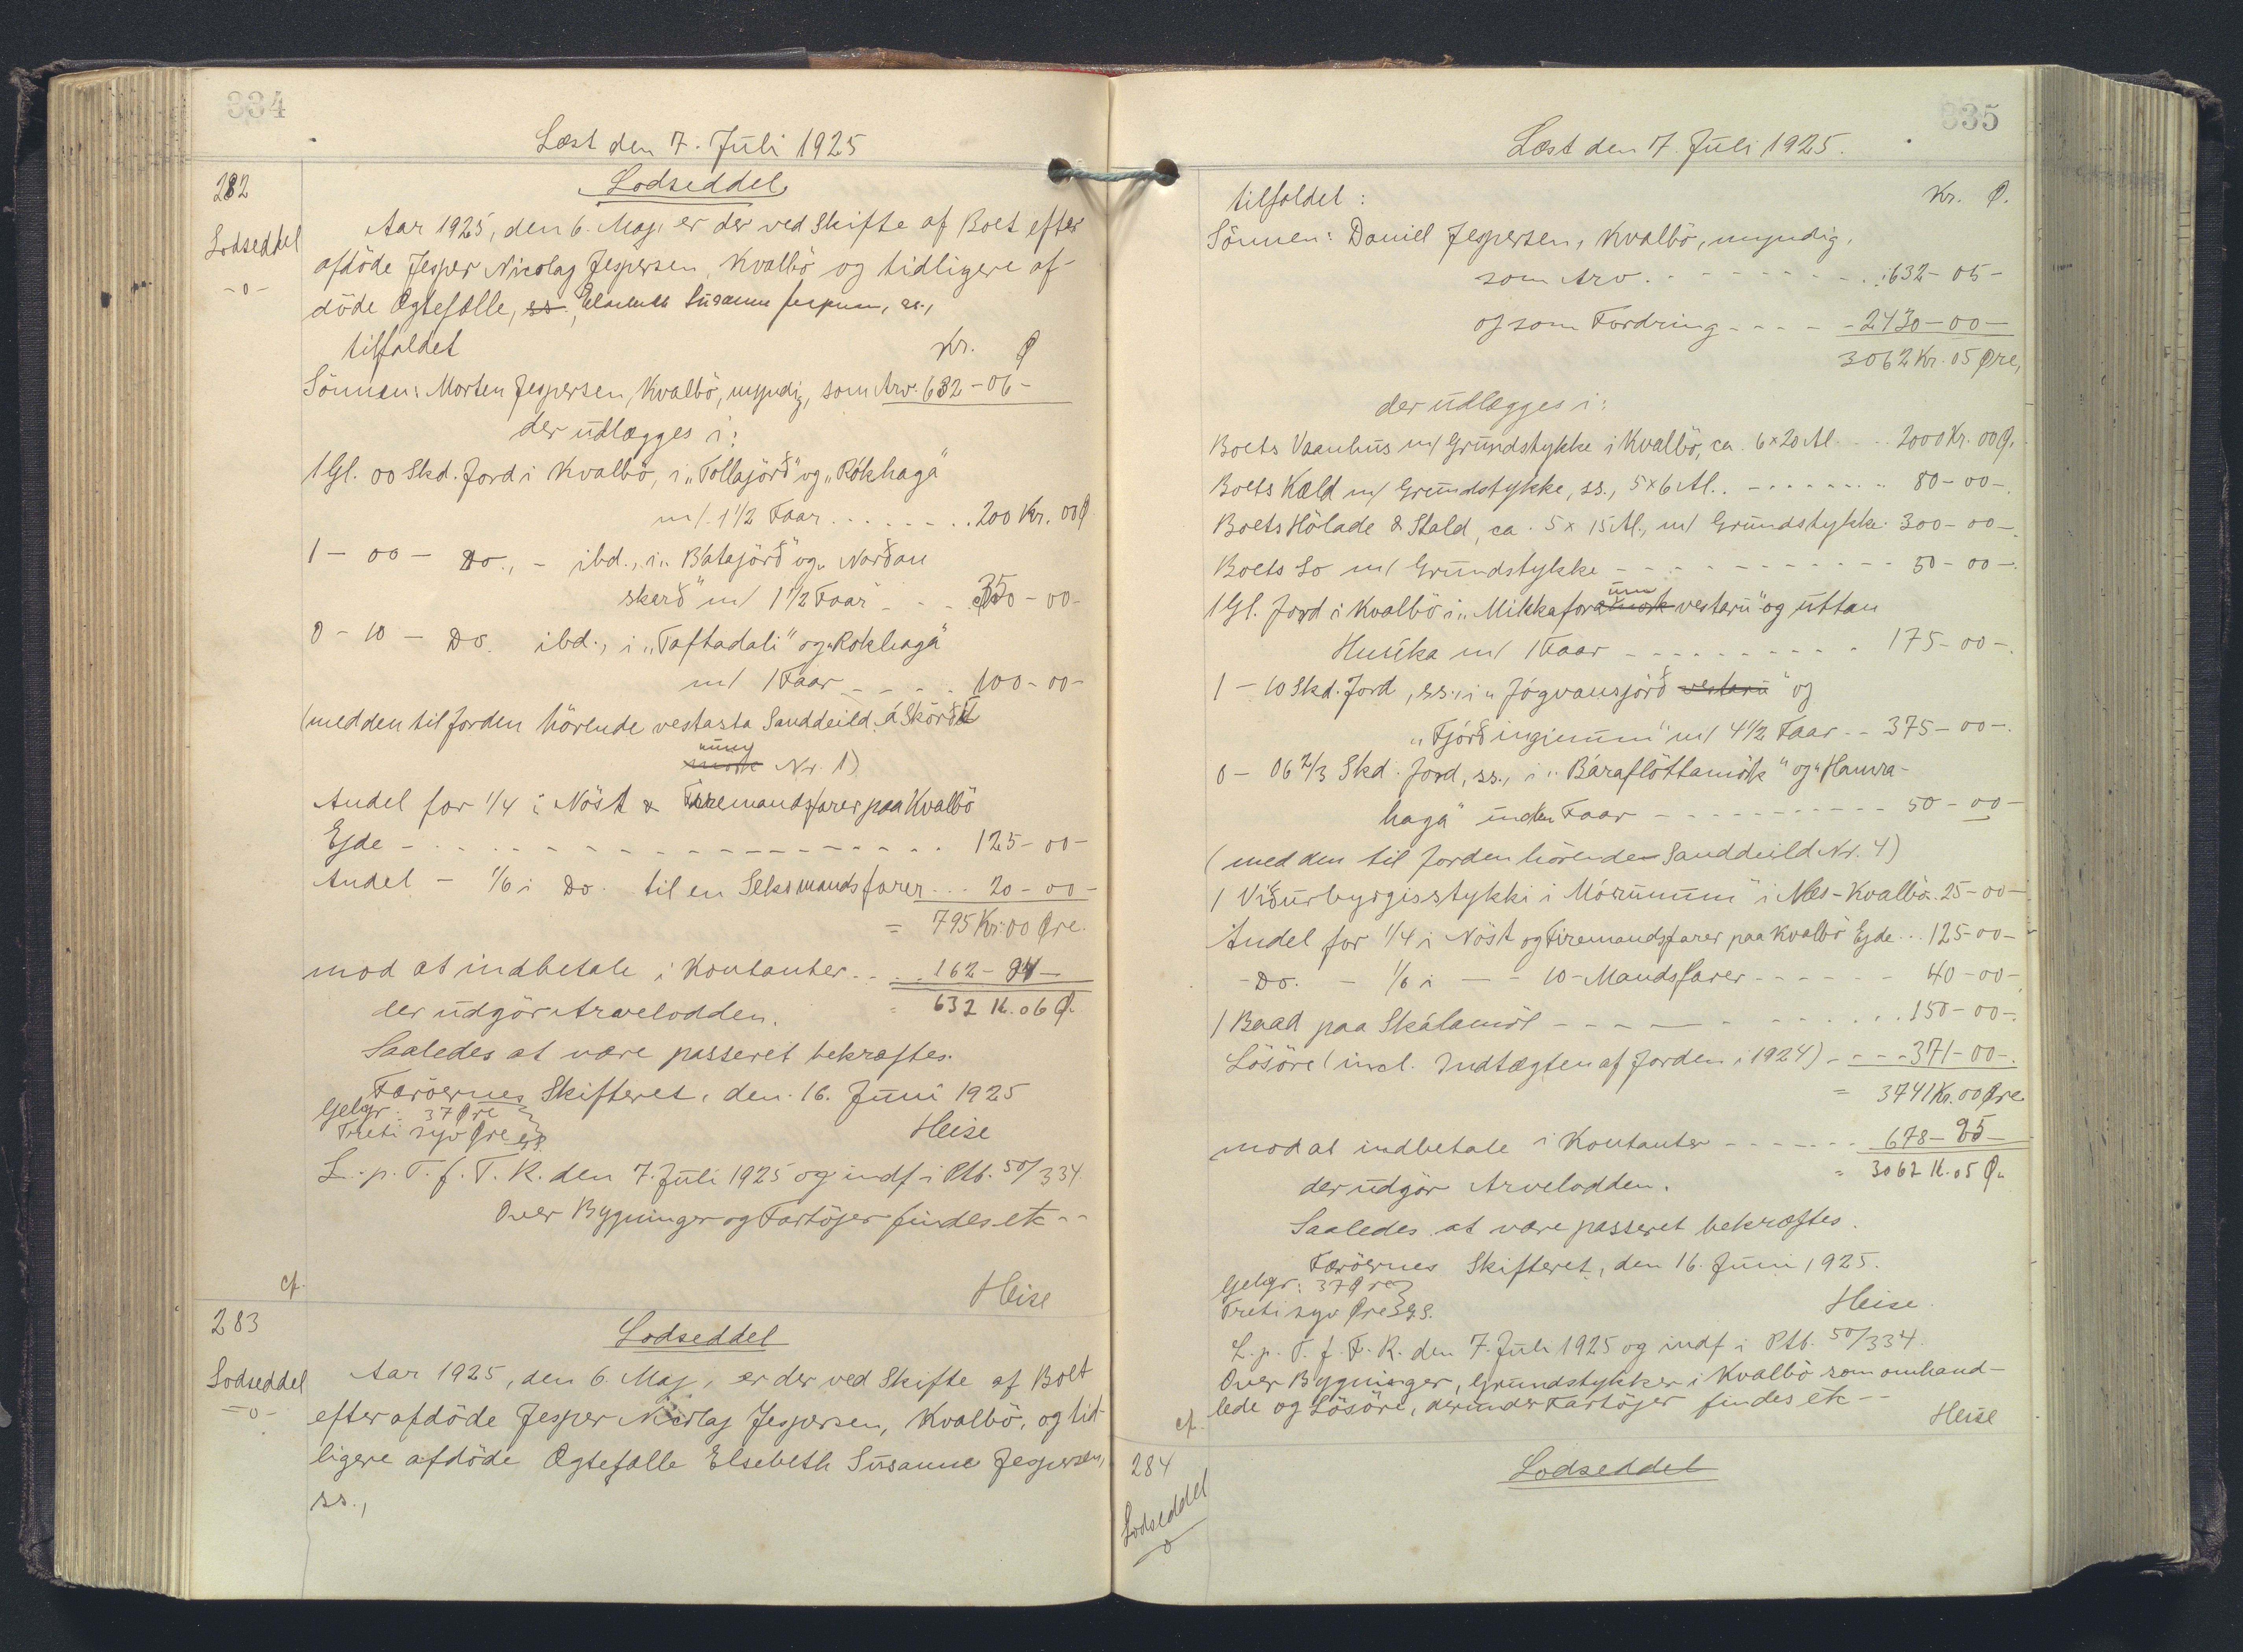 334
Læst den 7. Juli 1925
282
Lodseddel
-o-
Lodseddel
Aar 1925, den 6. Maj, er der ved Skifte af Boet efter
afdöde Jesper Nicolaj Jespersen, Kvalbö og tidligere af-
döde Ægtefælle, ss. Elsebeth Susanne Jespersen, ss.,
tilfaldet Kr. Ø
Sönnen: Morten Jespersen, Kvalbö, myndig, som Arv. 632-06-
der udlægges i:
1 Gl. 00 Skd. Jord i Kvalbö, i „Tollajörð" og „Rókhaga"
m/ 1 1/2 Faar . . . . . . . 200 Kr. 00 Ø
1 - 00 - Do., - ibd., i „Bátajörð" og „Norðan
skarð" m/ 1 1/2 Faar - - - 350-00-
0 - 10 - Do. ibd., i „Taftadali" og „Rokhaga"
m/ 1 Faar - - - - 100-00-
(med den til Jorden hörende vestasta Sanddeild á Skörð
Nr. 1)
Andel for 1/4 i Nöst & Firemandsfarer paa Kvalbö
Ejde - - - - - - - - - - - - - - - - 125-00-
Andel - 1/6 i Do. til en Seksmandsfarer ... 20-00-
= 795 Kr. 00 Øre.
mod at indbetale i Kontanter . . . . 162-94-
der udgör Arvelodden. = 632 K. 06 Ø.
Saaledes at være passeret bekræftes.
Færöernes Skifteret, den 16. Juni 1925
Gebyr: 37 Øre
Treti syv Øre
Heise
L. p. T. f. F. R. den 7. Juli 1925 og indf. i Ptb. 50/334.
Over Bygninger og Fartöjer findes etc --
cf.
Heise
283
Lodseddel
-o-
Lodseddel
Aar 1925, den 6. Maj, er der ved Skifte af Boet
efter afdöde Jesper Nicolaj Jespersen, Kvalbö, og tid-
ligere afdöde Ægtefælle Elsebeth Susanne Jespersen,
ss.,
335
Læst den 7. Juli 1925.
tilfaldet: Kr. Ø.
Sönnen: Daniel Jespersen, Kvalbö, myndig,
som Arv. - - - - - - - - - 632-05-
og som Fordring - - - - 2430-00-
3062 Kr. 05 Øre,
der udlægges i:
Boets Vaanhus m/ Grundstykke i Kvalbö, ca. 6x20 Al. . . . 2000 Kr. 00 Ø.
Boets Kæld m/ Grundstykke, ss., 5x6 Al. . - - - - - - - - 80-00-.
Boets Hölade & Stald, ca. 5 x 15 Al., m/ Grundstykke. 300-00-.
Boets So m/ Grundstykke - - - - - - - - - - - 50-00-.
1 Gl. Jord i Kvalbö i „Mikkafor vestaru" og uttan
Husíka m/ 1 Faar - - - - - - - - - 175-00-.
1 - 10 Skd. Jord, ss., i „Jógvansjörð vestaru" og
„Fjórðinginum" m/ 4 1/2 Faar - - 375-00-.
0 - 06 2/3 Skd. Jord, ss., i „Báraflöttamörk" og „Hamra-
haga" uden Faar - - - - - - - - 50-00-
(med den til Jorden hörende Sanddeild Nr. 4)
1 Viðurbyrgisstykki i Mórunum" i Nes-Kvalbö. 25-00-
Andel for 1/4 i Nöst og Firemandsfarer paa Kvalbö Ejde . . . 125-00-
- Do. - 1/6 i - - 10-Mandsfarer - - - - - - 40-00-
1 Baad paa Skálamöl - - - - - - - - - - - 150-00-.
Lösöre (incl. Indtægten af Jorden i 1924) - - - - 371-00-.
= 3741 Kr. 00 Øre.
mod at indbetale i Kontanter - - - - - - - 678-95-
der udgör Arvelodden. = 3062 K. 05 Ø.
Saaledes at være passeret bekræftes.
Færöernes Skifteret, den 16. Juni 1925.
Gebyr: 37 Øre
Treti syv Øre
Heise.
L. p. T. f. F. R. den 7. Juli 1925 og indf. i Ptb. 50/334.
Over Bygninger, Grundstykker i Kvalbö som omhand-
lede og Lösöre, derunder Fartöjer findes etc --
cf.
Heise
284
Lodseddel
o
Lodseddel